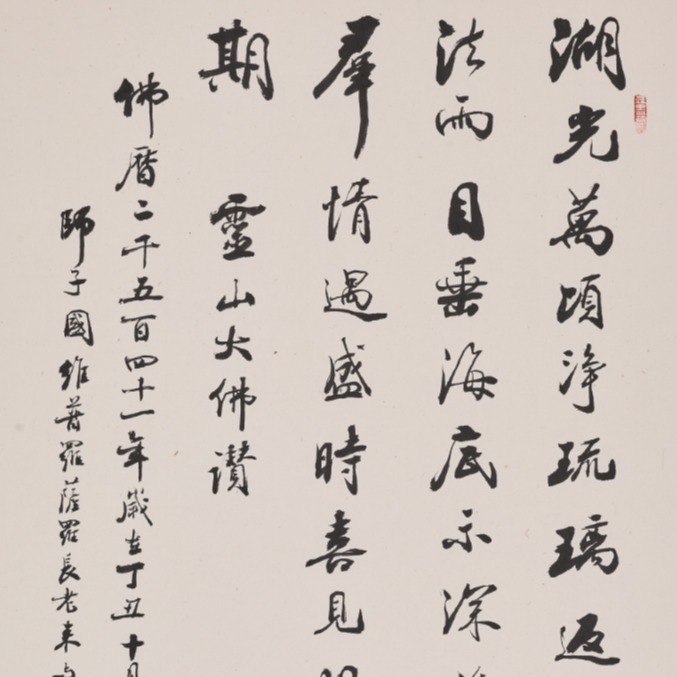 湖光萬頃淨琉璃返
法雨目垂海底示深
羣情遇盛時喜見
期 靈山大佛讚
佛曆二千五百四十一年歲在丁丑十月
師子國維普羅薩羅長老来